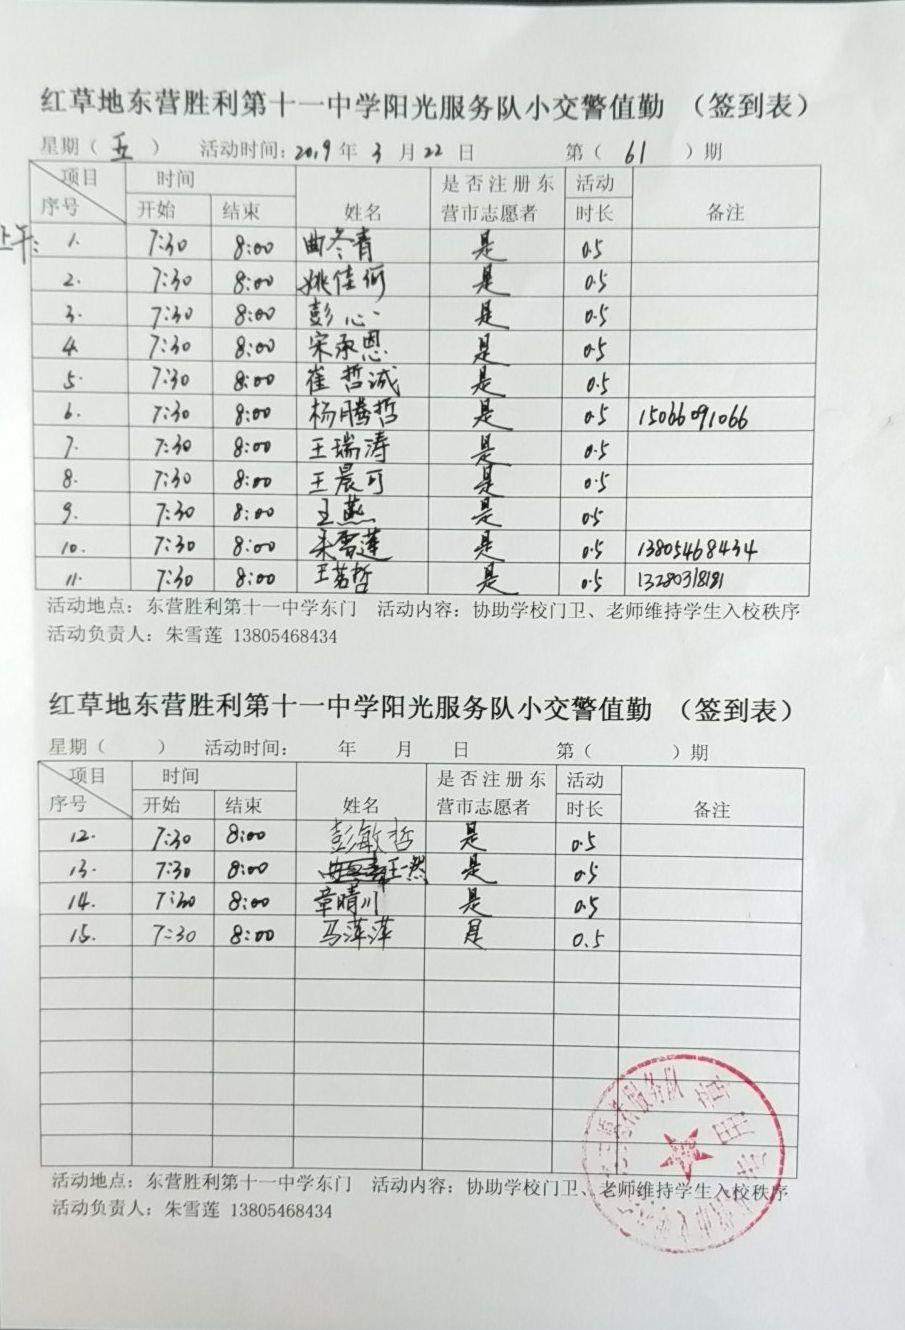 红草地东营胜利第十一中学阳光服务队小交警值勤 （签到表）
星期（ 五 ） 活动时间：2019 年 3 月 22 日 第（ 61 ）期
项目 时间 是否注册东 活动
序号 开始 结束 姓名 营市志愿者 时长 备注
上午：1. 7:30 8:00 曲冬青 是 0.5
2. 7:30 8:00 姚佳何 是 0.5
3. 7:30 8:00 彭心 是 0.5
4. 7:30 8:00 宋承恩 是 0.5
5. 7:30 8:00 崔哲诚 是 0.5
6. 7:30 8:00 杨腾哲 是 0.5 15066091066
7. 7:30 8:00 王瑞涛 是 0.5
8. 7:30 8:00 王晨可 是 0.5
9. 7:30 8:00 王燕 是 0.5
10. 7:30 8:00 朱雪莲 是 0.5 13805468434
11. 7:30 8:00 王茗哲 是 0.5 13280318181
活动地点：东营胜利第十一中学东门 活动内容：协助学校门卫、老师维持学生入校秩序
活动负责人：朱雪莲 13805468434
红草地东营胜利第十一中学阳光服务队小交警值勤 （签到表）
星期（ ） 活动时间： 年 月 日 第（ ）期
项目 时间 是否注册东 活动
序号 开始 结束 姓名 营市志愿者 时长 备注
12. 7:30 8:00 彭敏哲 是 0.5
13. 7:30 8:00 王一然 是 0.5
14. 7:30 8:00 章晴川 是 0.5
15. 7:30 8:00 马萍萍 是 0.5
活动地点：东营胜利第十一中学东门 活动内容：协助学校门卫、老师维持学生入校秩序
活动负责人：朱雪莲 13805468434